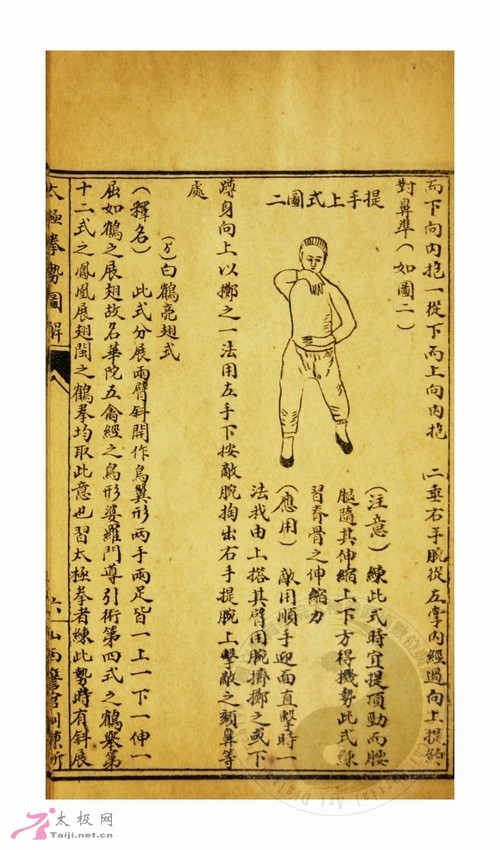 而下向内抱一從下而上向内抱　二垂右手腕從左掌内經過向上提
對鼻準（如圖二）
提手上式圖二
（注意）練此式時宜提頂勁而腰
腿隨其伸縮上下方得機勢此式練
習脊骨之伸縮力
（應用）敵用順手迎面直擊時一
法我由上搭其臂用腕擠擲之或下
蹲身向上以擲之一法用左手下按敵腕掏出右手提腕上擊敵之頦鼻等
處
(5)白鶴亮翅式
（釋名）此式分展兩臂斜開作鳥翼形兩手兩足皆一上一下一伸一
屈如鶴之展翅故名華陀五禽經之鳥形婆羅門導引術第四式之鶴舉第
十二式之鳳凰展翅閩之鶴拳均取此意也習太極拳者練此勢時有斜展
太極拳勢圖解　六　山西警官訓練所
太极网
Taiji.net.cn